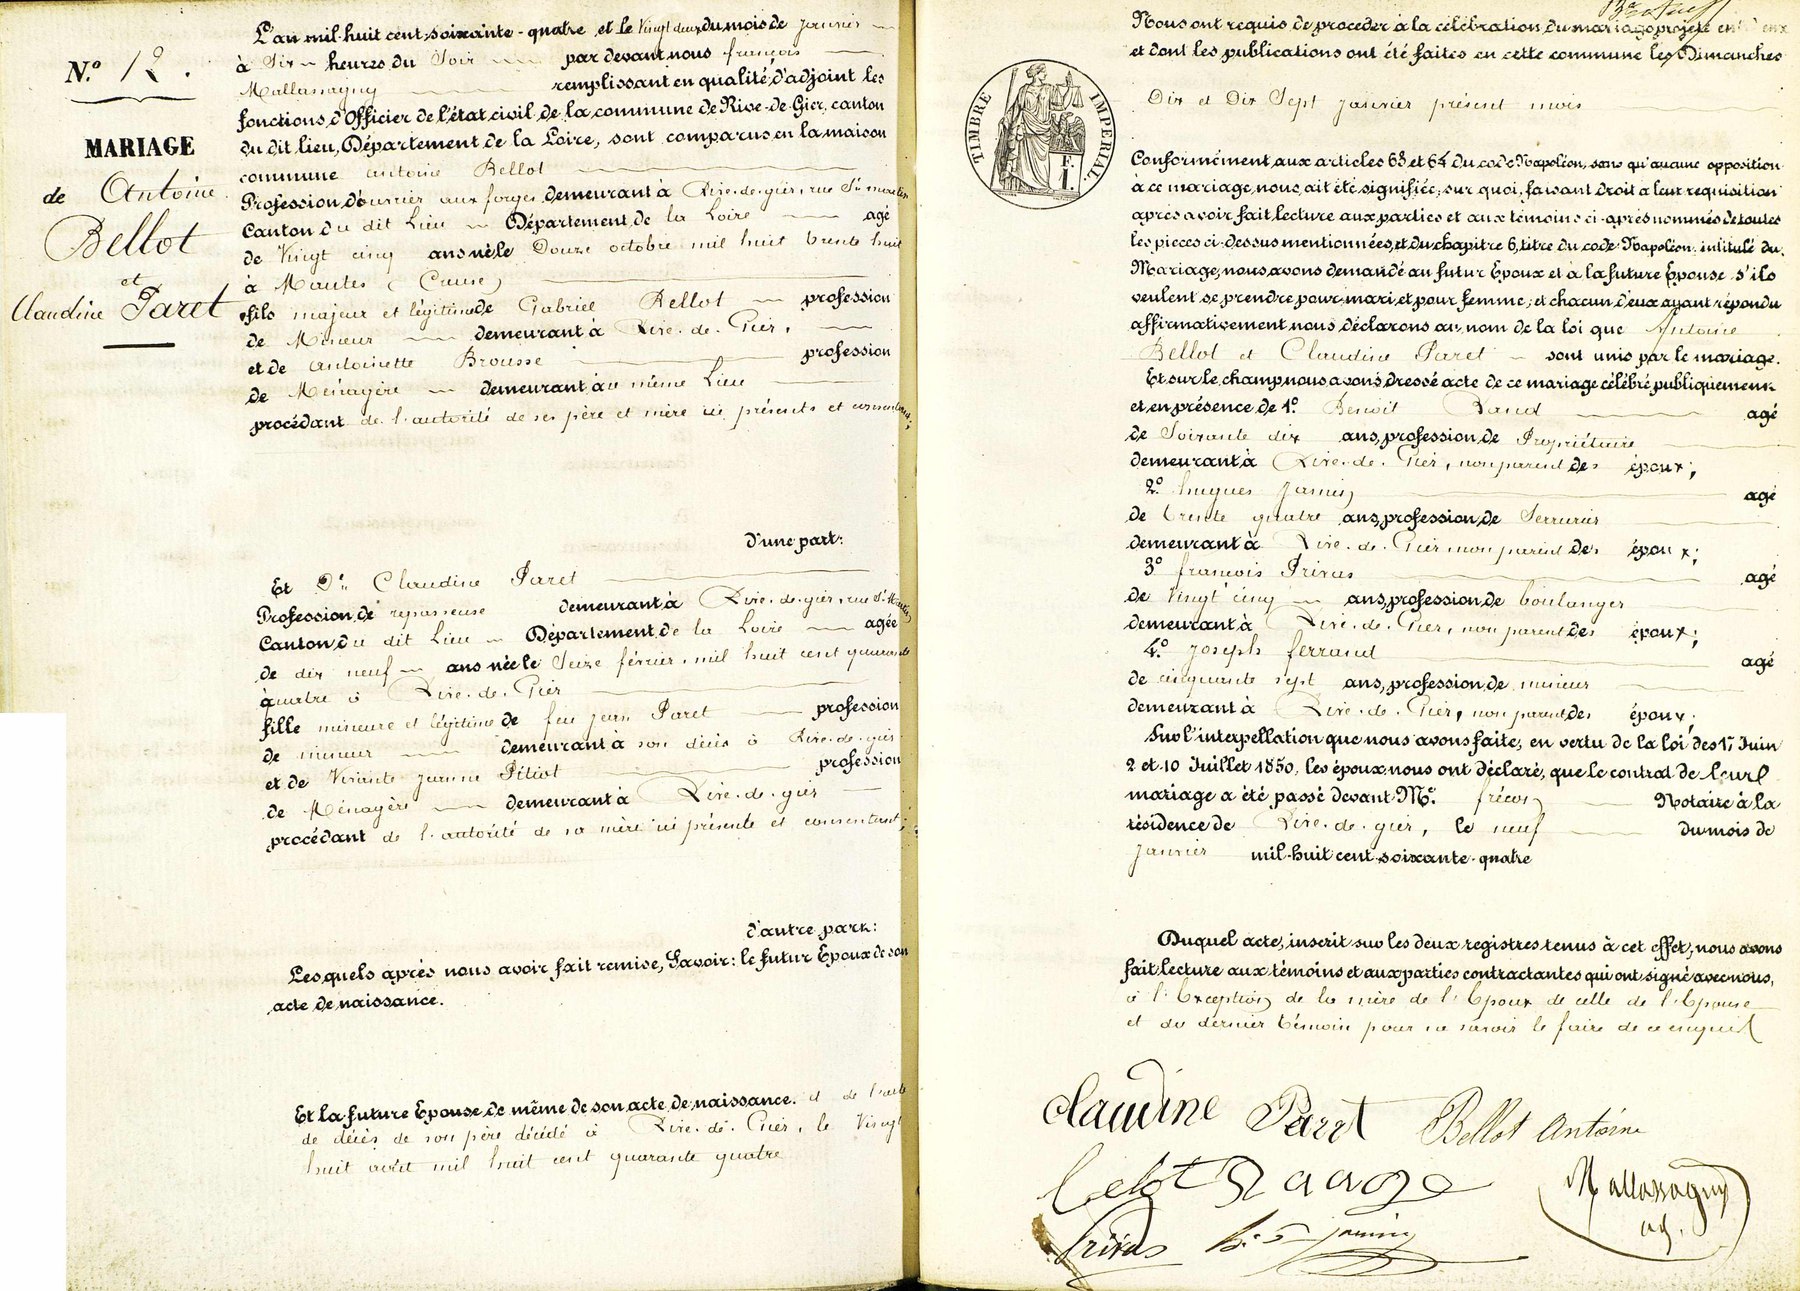 N.º 12.
MARIAGE
de Antoine
Bellot
et
Claudine Paret
L'an mil-huit cent-soixante-quatre et le Vingt deux du mois de Janvier
à Six heures du Soir par devant nous françois
Mallassagny remplissant en qualité d'adjoint les
fonctions d'Officier de l'état civil de la commune de Rive-de-Gier, canton
du dit lieu, Département de la Loire, sont comparus en la maison
commune Antoine Bellot
Profession d'ouvrier aux forges demeurant à Rive-de-gier, rue St martin
Canton du dit Lieu Département de la Loire agé
de Vingt cinq ans né le Douze octobre mil huit trente huit
à Mautes (Creuse)
fils majeur et légitime de Gabriel Bellot profession
de Mineur demeurant à Rive-de-Gier,
et de antoinette Brousse profession
de Ménagère demeurant au même Lieu
procédant de l'autorité de ses père et mère ici présents et consentants;
d'une part:
Et Dlle Claudine Paret
Profession de repasseuse demeurant à Rive-de-gier, rue St Martin
Canton du dit Lieu Département de la Loire agée
de dix neuf ans née le Seize février mil huit cent quarante
quatre à Rive-de-Gier
fille mineure et légitime de feu jean Paret profession
de mineur demeurant à son décès à Rive-de-gier
et de Vivante jeanne Pitiot profession
de Ménagère demeurant à Rive-de-gier
procédant de l'autorité de sa mère ici présente et consentant;
d'autre part:
Lesquels après nous avoir fait remise, Savoir: le futur Epoux de son
acte de naissance.
Et la future Epouse de même de son acte de naissance. et de l'acte
de décès de son père décédé à Rive-de-Gier, le Vingt
huit août mil huit cent quarante quatre
Nous ont requis de procéder à la célébration du mariage projeté entr'eux
et dont les publications ont été faites en cette commune les Dimanches
Dix et Dix Sept janvier présent mois
TIMBRE IMPERIAL
1 F.
Conformément aux articles 63 et 64 du code Napoléon, sans qu'aucune opposition
à ce mariage, nous ait été signifiée, sur quoi, faisant droit a leur requisition
après avoir fait lecture aux parties et aux témoins ci-après nommés de toutes
les pieces ci-dessus mentionnées, et du chapitre 6, titre du code Napoléon intitulé du
Mariage, nous avons demandé au futur Epoux et à la future Epouse s'ils
veulent se prendre pour mari et pour femme; et chacun d'eux ayant répondu
affirmativement nous déclarons au nom de la loi que Antoine
Bellot et Claudine Paret sont unis par le mariage.
Et sur le champ nous avons dressé acte de ce mariage célébré publiquement
et en présence de 1º Benoit agé
de Soixante dix ans, profession de Propriétaire
demeurant à Rive-de-Gier, non parent des époux;
2º hugues Jamin agé
de trente quatre ans, profession de Serrurier
demeurant à Rive-de-Gier non parent des époux;
3º françois Privas agé
de Vingt cinq ans, profession de boulanger
demeurant à Rive-de-Gier, non parent des époux;
4º Joseph ferrand agé
de cinquante sept ans, profession de mineur
demeurant à Rive-de-Gier, non parent des époux.
Sur l'interpellation que nous avons faite, en vertu de la loi des 17 Juin
2 et 10 Juillet 1850, les époux nous ont déclaré, que le contrat de leur
mariage a été passé devant Me. frécon Notaire à la
résidence de Rive-de-gier, le neuf du mois de
janvier mil-huit cent-soixante-quatre
Duquel acte, inscrit sur les deux registres tenus à cet effet, nous avons
fait lecture aux témoins et aux parties contractantes qui ont signé avec nous,
à l'Exception de la mère de l'Epoux de celle de l'Epouse
et du dernier témoin pour ne savoir le faire de ce enquis
Claudine Paret Bellot Antoine
Mallassagny
adj.
Privas jamin